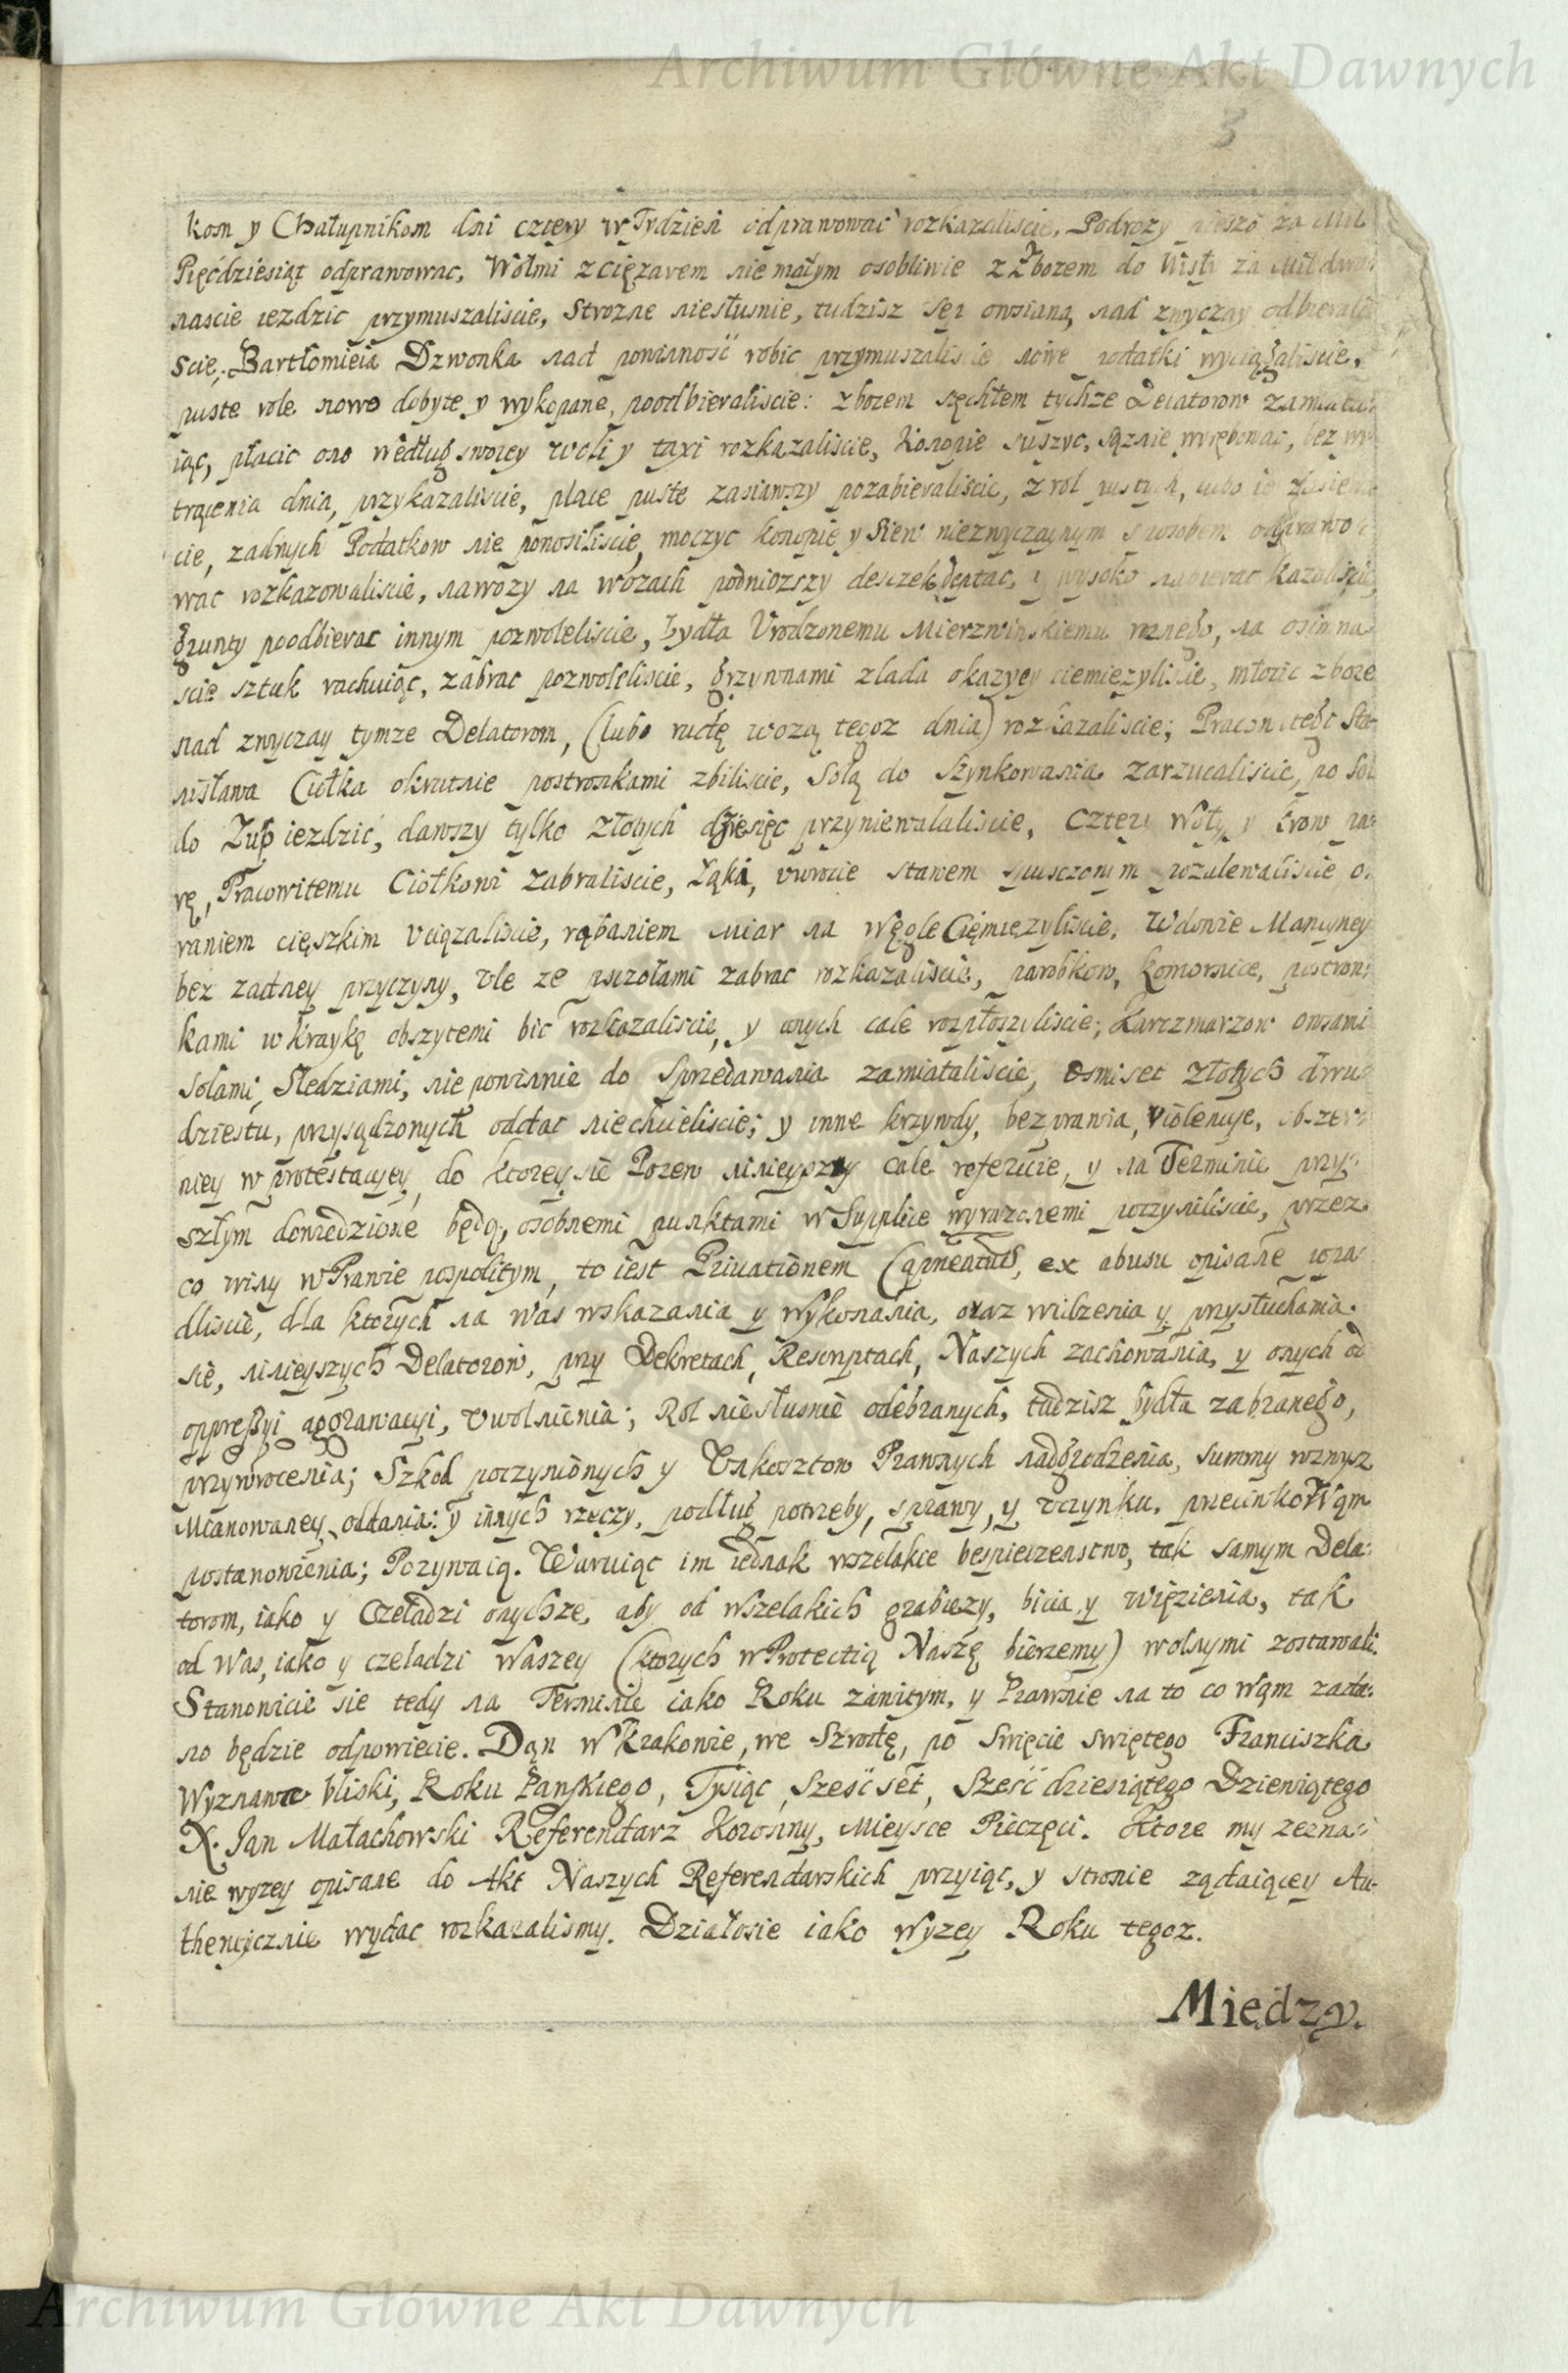 Archiwum Główne Akt Dawnych
3
kom y Chałupnikom dni cztery w Tydzień odprawować rozkazaliscie, Podrozy pieszo za Mil
Pięćdziesiąt odprawowac, Wołmi z cięzarem nie małym osobliwie z Zbozem do Wisły za Mil dwa-
nascie iezdzic przymuszaliscie, Strozne niesłusnie, tudzisz Sep owsianą nad zwyczay odbierali
scie, Bartłomieia Dzwonka nad powinność robic przymuszaliscie nowe podatki wyciągaliscie,
puste role nowo dobyte y wykopane, poodbieraliscie: zbozem stęchłem tychze Delatorow zamiata-
iąc, płacic ono według swoiey woli y taxi rozkazaliscie, Konopie suszyc, sąznie wyrębowac, bez wy-
trącenia dnia, przykazaliscie, place puste zasiawszy pozabieraliscie, z rol pustych, lubo ie
cie, zadnych Podatkow nie ponosiliscie, moczyc konopie y Siew niezwyczaynym sposobem odprawo-
wac rozkazowaliscie, nawozy na wozach podniozszy deszczek deptac, y wysoko nabierac kazaliscie,
grunty poodbierac innym pozwoleliscie, bydła Urodzonemu Mierzwinskiemu roznego, na osimna-
scie sztuk rachuiąc, zabrac pozwoleliscie, grzywnami zlada okazyey ciemiezyliscie, młocic zboze
nad zwyczay tymze Delatorom, (lubo rudę wozą tegoz dnia) rozkazaliscie; Pracowitego Sta-
nisława Ciołka okrutnie postronkami zbiliscie, Solą do Szynkowania zarzucaliscie, po Sol
do Zup iezdzić, dawszy tylko złotych dziesięc przyniewalaliscie, cztery Woły y krow pa-
rę, Pracowitemu Ciołkowi zabraliscie, Łąki, uwrocie stawem spusczonym pozalewaliscie o-
raniem cięszkim uciązaliscie, rąbaniem miar na węgle Ciemięzyliscie, Wdowie Marcyney
bez zadney przyczyny, Ule ze pszołami zabrac rozkazaliscie, parobkow, komornice, postron-
kami w kraykę obszytemi bic rozkazaliscie, y onych cale rozpłoszyliscie; Karczmarzow owsami
solami, Sledziami, nie powinnie do Sprzedawania zamiataliscie, osmiset złotych dwu-
dziestu, przysądzonych oddac niechcieliscie; y inne krzywdy, bezprawia, violencye, obszer-
niey w protestacyey, do ktorey sie Pozew ninieyszy cale referuie, y na Terminie przy-
szłym dowiedzione będą, osobnemi punktami w Supplice wyrazonemi poczyniliscie, przez
co winy w Prawie pospolitym, to iest Privationem Caementatus, ex abusu opisane popa-
dliscie, dla ktorych na was wskazania y wykonania, oraz widzenia y przysłuchania
sie, ninieyszych Delatorow, przy Dekretach, Rescriptach, Naszych zachowania, y onych od
oppressyi aggrawacyi, Uwolnienia; Rol niesłusnie odebranych, tudzisz bydła zabranego,
przywrocenia; Szkod poczynionych y Unkosztow Prawnych nadgrodzenia, Summy wzwysz
Mianowaney, oddania: y innych rzeczy, podług potrzeby, sprawy, y uczynku, przeciwko Wąm
postanowienia; Pozywaią. Waruiąc im iednak wszelakie bespieczenstwo, tak samym Dela-
torom, iako y Czeladzi onychze, aby od wszelakich grabiezy, bicia y więzienia, tak
od Was, iako y czeladzi waszey (ktorych w Protectią Naszę bierzemy) wolnymi zostawali.
Stanowicie sie tedy na Terminie iako Roku zawitym, y Prawnie na to co wąm zada-
no będzie odpowiecie. Dąn w Krakowie, we Szrodę, po Swięcie swiętego Franciszka
Wyznawce bliski, Roku Panskiego, Tysiąc, Sześć set, Sześć dziesiątego Dziewiątego
X. Jąn Małachowski Referendarz Koronny, Mieysce Pieczęci. Ktore my zezna-
nie wyzey opisane do Akt Naszych Referendarskich przyiąc, y stronie ządaiącey Au-
thentycznie wydac rozkazalismy. Działosie iako wyzey Roku tegoz.
Między.
Archiwum Główne Akt Dawnych